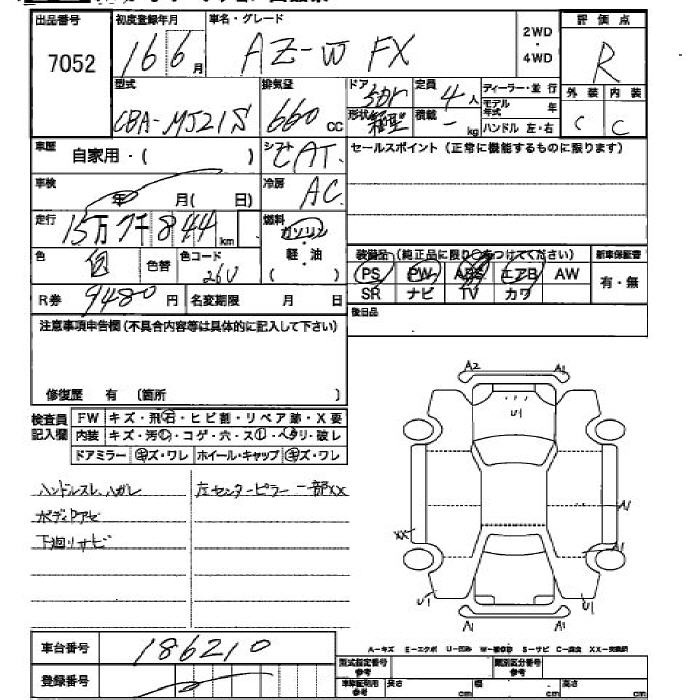 出品番号 初度登録年月 車名・グレード 2WD・4WD 評価点
7052 16 6月 AZ-W FX R
型式 排気量 ドア 定員 ディーラー・並行 外装 内装
CBA-MJ21S 660cc 5Dr 4人 モデル年式 年 C C
形状 箱型 積載 - kg ハンドル 左・右
車歴 自家用・( ) シフト CAT. セールスポイント(正常に機能するものに限ります)
車検 年 月( 日) 冷房 AC
走行 15万7千844km 燃料 ガソリン・軽油・( )
色 白 色替 色コード 26U
装備品(純正品に限り○をつけてください) 新車保証書
PS PW ABS エアB AW 有・無
SR ナビ TV カワ
R券 9480円 名変期限 月 日 後日品
注意事項申告欄(不具合内容等は具体的に記入して下さい)
修復歴 有 〔箇所 〕
検査員記入欄 FW キズ・飛石・ヒビ割・リペア跡・X要
内装 キズ・汚レ・コゲ・穴・スレ・ヘタリ・破レ
ドアミラー キズ・ワレ ホイール・キャップ キズ・ワレ
ハンドルスレ、ハガレ 左センターピラー一部XX
ボディアセ
下廻リサビ
A2 A1
U1
A1
XX A1
U1 U1
A1 A1
車台番号 186210
A-キズ E-エクボ U-凹み W-補修跡 S-サビ C-腐食 XX-交換済
登録番号 型式指定番号 参考 類別区分番号 参考
車検証利用 参考 長さ cm 幅 cm 高さ cm